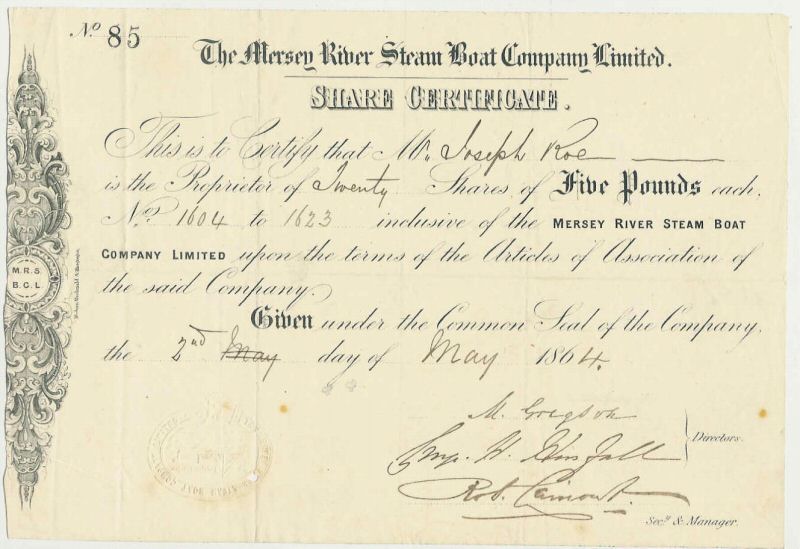 No 85
The Mersey River Steam Boat Company Limited.
SHARE CERTIFICATE.
This is to Certify that Mr. Joseph Roe
is the Proprietor of Twenty Shares of Five Pounds each,
Nos 1604 to 1623 inclusive of the MERSEY RIVER STEAM BOAT
COMPANY LIMITED upon the terms of the Articles of Association of
the said Company.
Given under the Common Seal of the Company,
the 2nd May day of May 1864.
M.R.S.
B.C.L
M. Gregson
H. Horsfall
Directors.
Robt. Lamont.
Secy. & Manager.